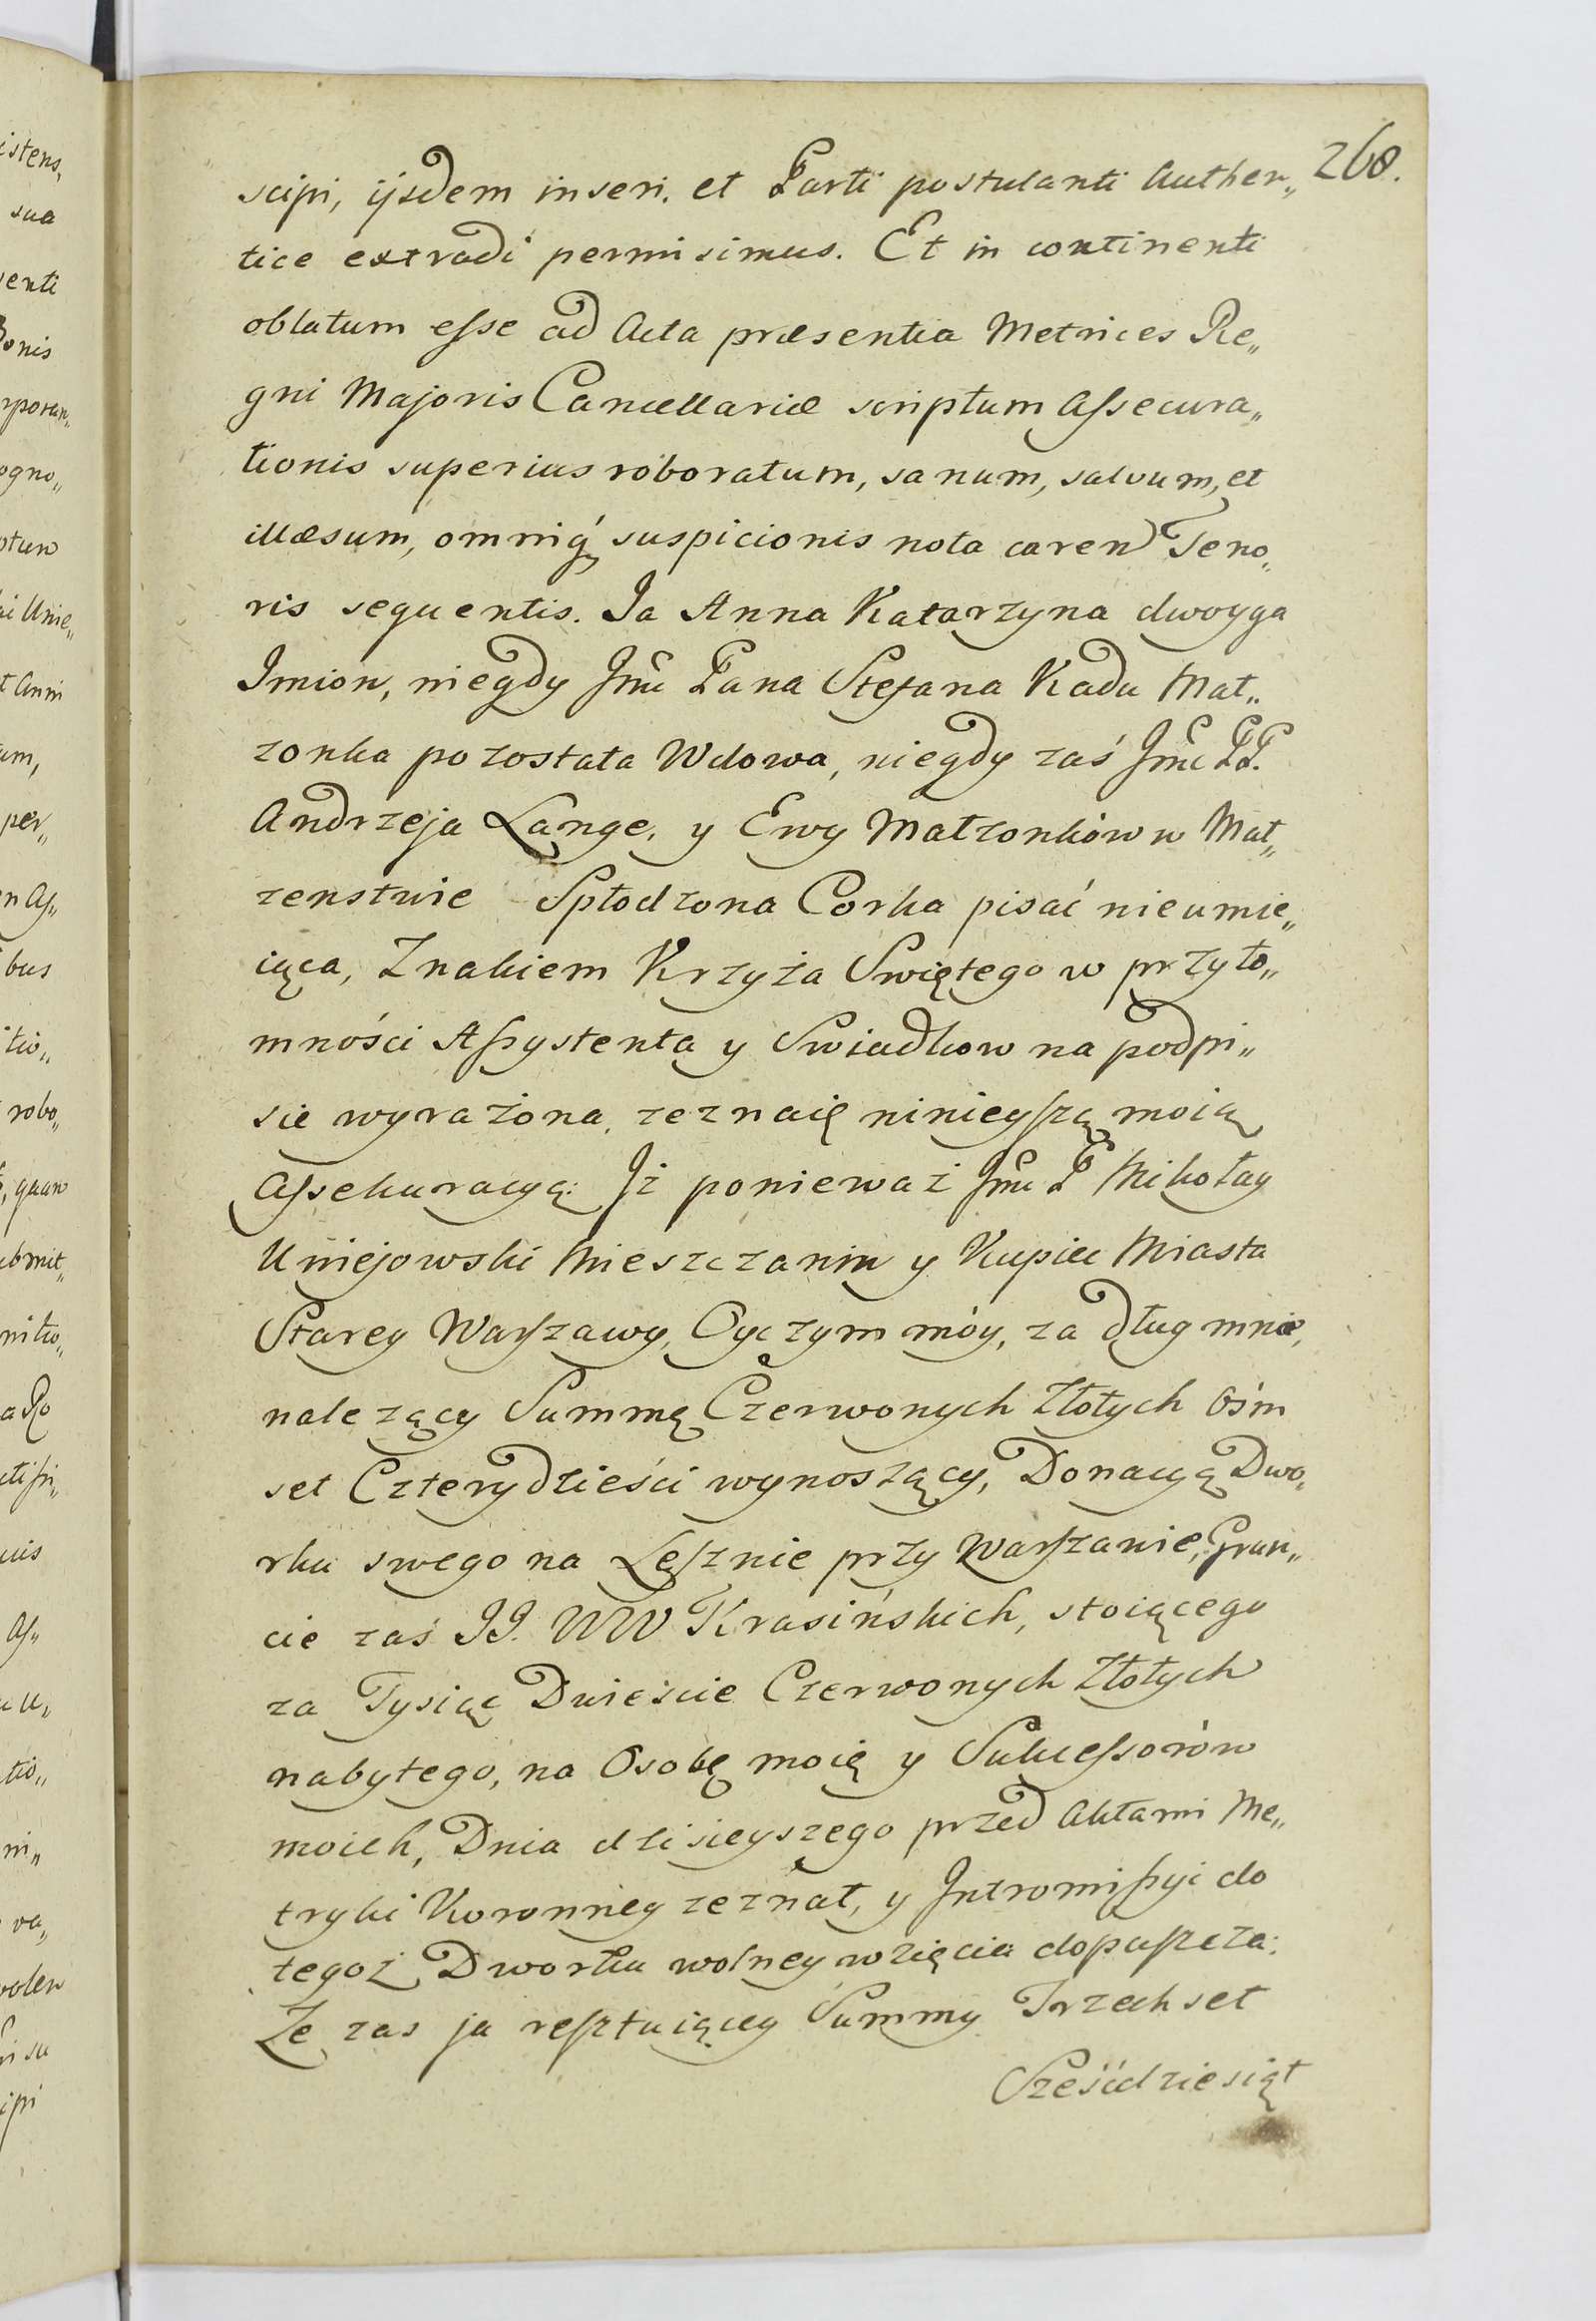 268.
scipi, ijsdem inseri, et Parti postulanti Authen„
tice extradi permisimus. Et in continenti
oblatum esse ad Acta præsentia Metrices Re„
gni Majoris Cancellariæ scriptum Assecura„
tionis superius roboratum, sanum, salvum, et
illæsum, omniq́ suspicionis nota caren Teno„
ris sequentis. Ja Anna Katarzyna dwoyga
Imion, niegdy Jmc Pana Stefana Kadu Mał„
zonka pozostała Wdowa, niegdy zaś Jmc PP.
Andrzeja Lange, y Ewy Małzonków w Mał„
zenstwie Spłodzona Corka pisać nieumie„
iąca, Znakiem Krzyża Swiętego w przyto„
mności Assystenta y Swiadkow na podpi„
sie wyrażona, zeznaię ninieyszą moią
Assekuracyą: Iż ponieważ Jmc P Mikołay
Uniejowski Mieszczanin y Kupiec Miasta
Starey Warszawy, Oyczym móy, za dług mnie,
należący Summę Czerwonych Złotych Ośm
set Czterydzieści wynoszący, Donacyą Dwo„
rku swego na Lesznie przy Warszawie, Grun„
cie zaś JJ. WW Krasińskich, stoiącego
za Tysiąc Dwieście Czerwonych Złotych
nabytego, na Osobę moię y Sukcessorów
moich, Dnia dzisieyszego przed Aktami Me„
tryki Koronney zeznał, y Intromissyi do
tegoż Dworku wolney wzięcia dopuszcza:
Ze zas ja resztuiącey Summy Trzechset
Sześćdziesiąt
istens,
sua
enti
onis
rporan„
ogno„
ptum
ki Unie„
t Anni
um,
per„
n As„
bus
tio„
robo„
quam
ubmit„
nitio„
a Ro
uis
As„
tio„
ni„
va„
volen
ipi